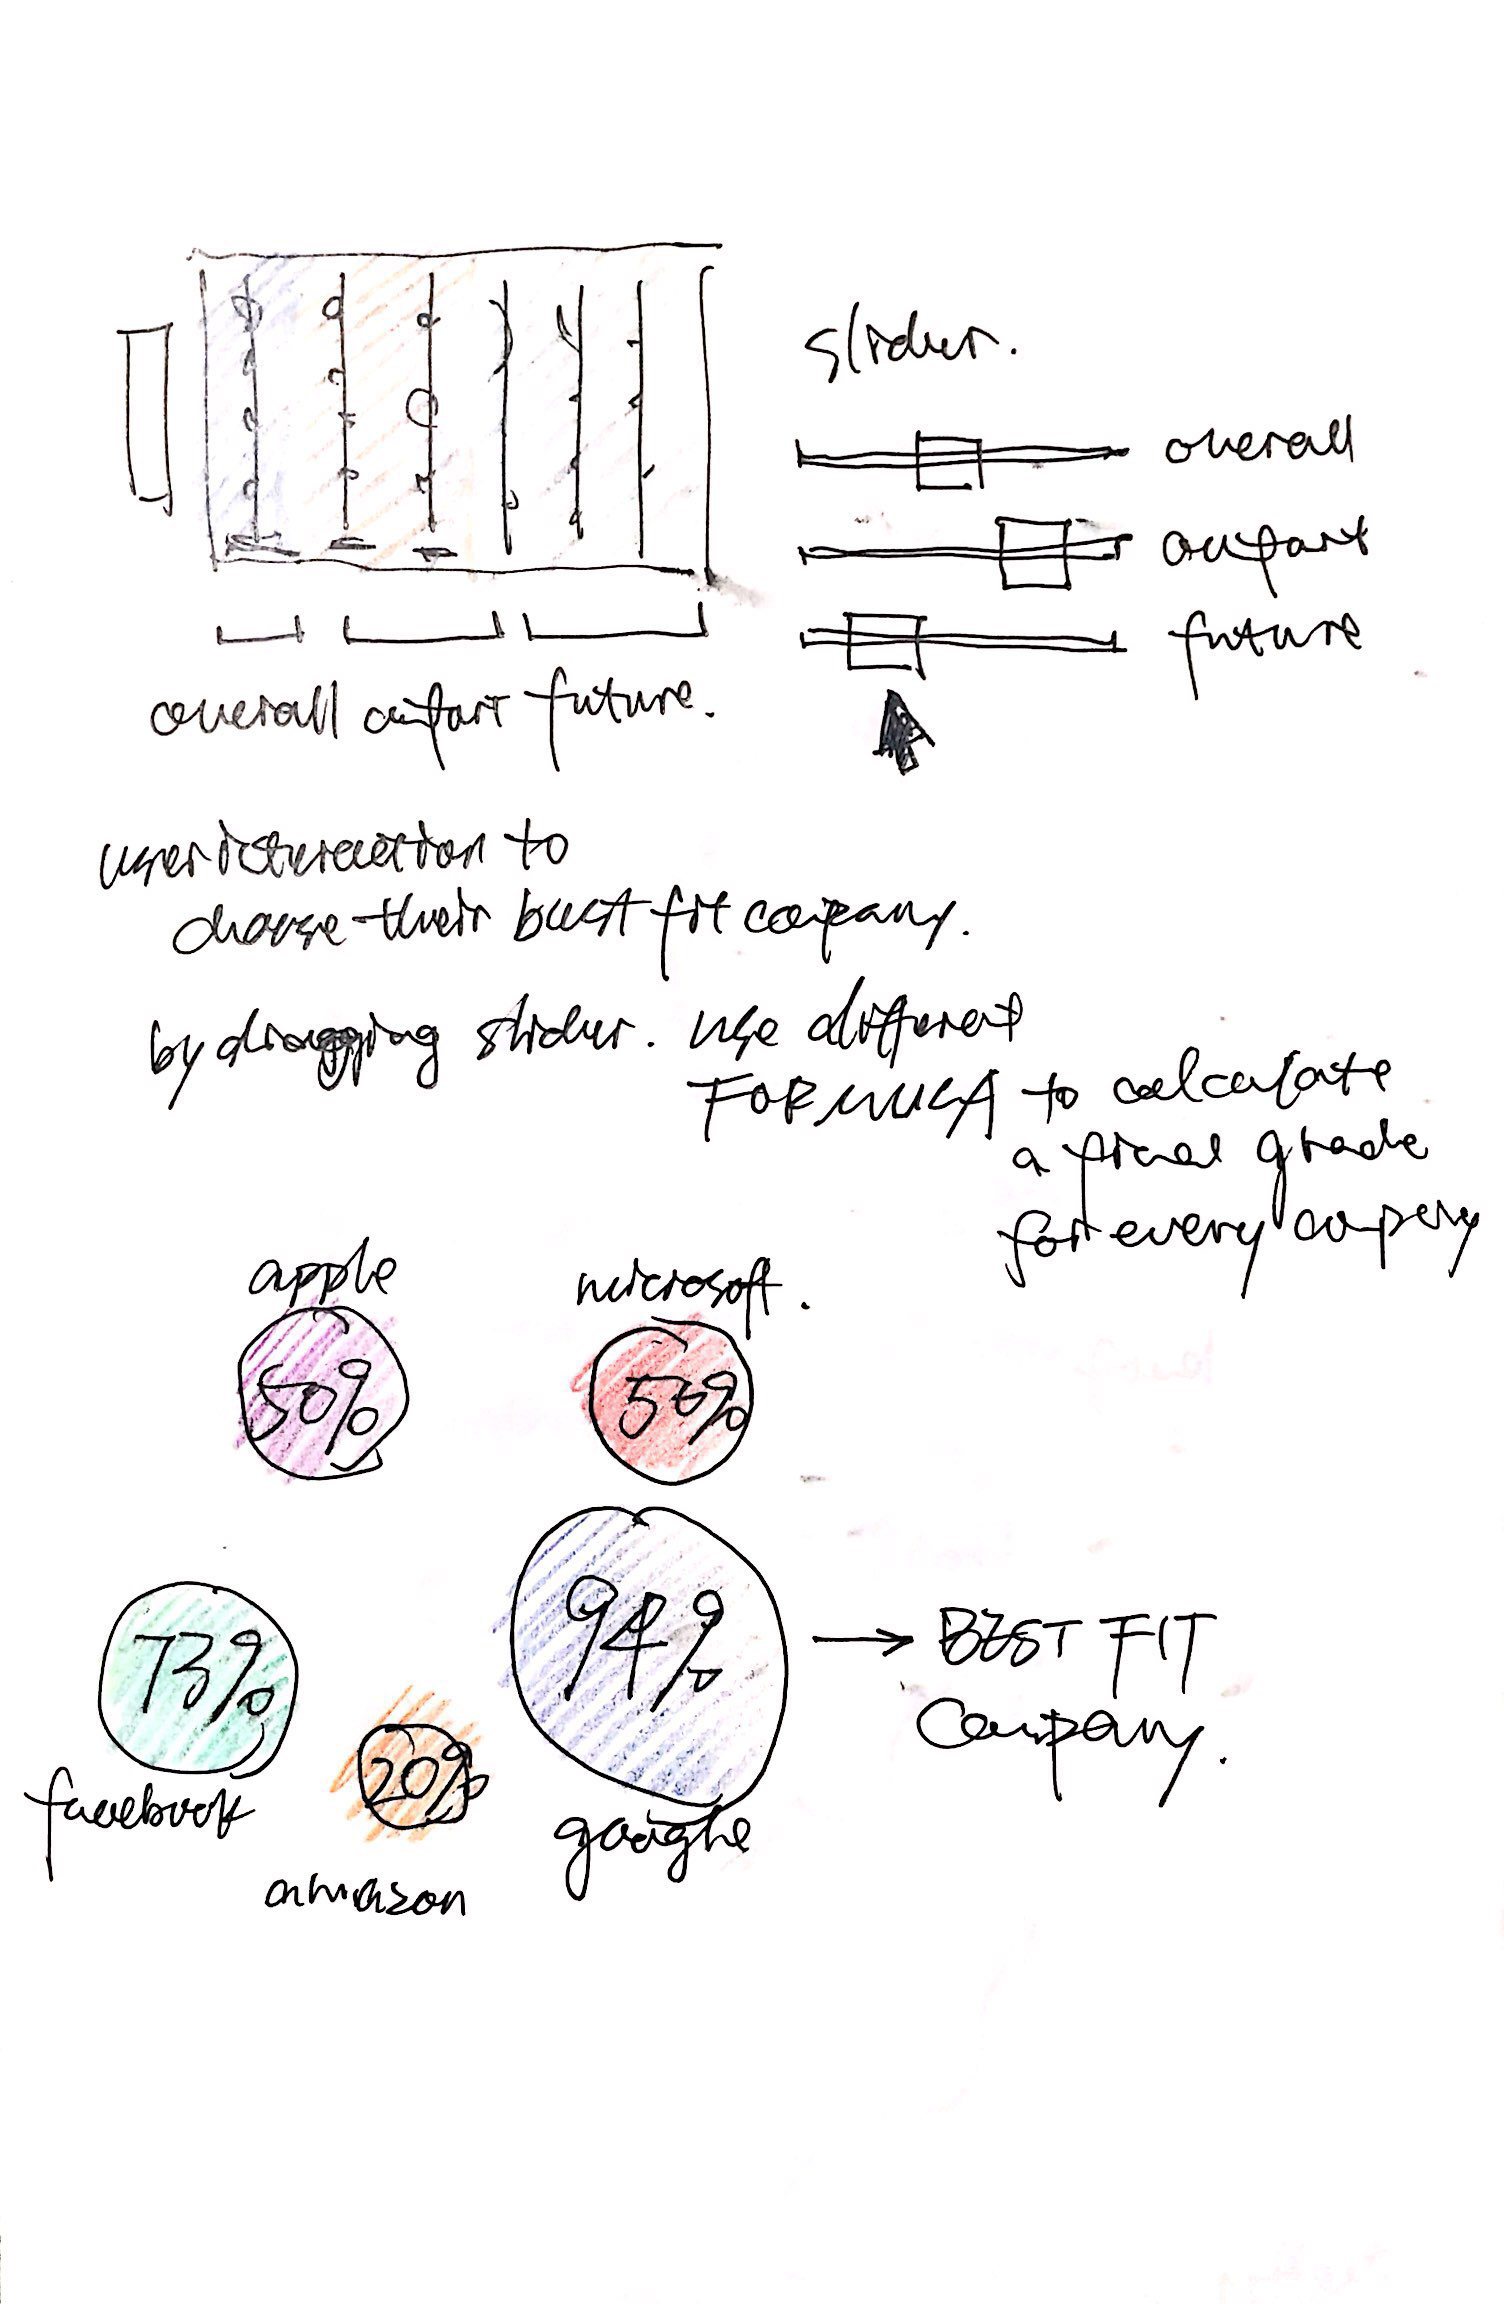 slider.
overall
comfort
future
overall comfort future.
user interaction to
choose their best fit company.
by dragging slider. use different
FORMULA to calculate
a final grade
for every company
apple
microsoft.
50%
50%
94%
73%
BEST FIT
Company.
20%
facebook
google
amazon